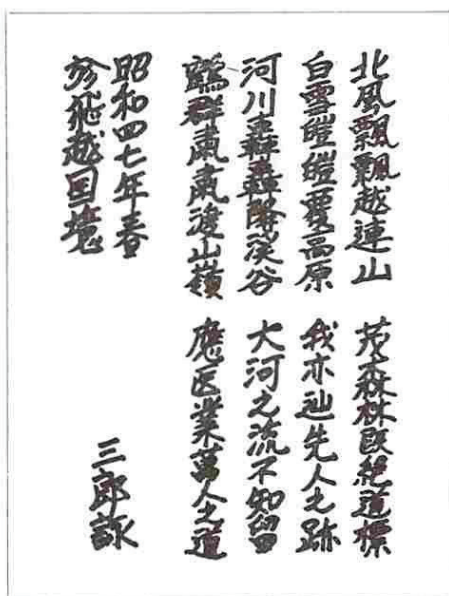 北風飄飄越連山 茂森林既絶道標
白雪皚皚覆高原 我亦辿先人之跡
河川轟轟降渓谷 大河之流不知留
群粛粛渡山嶺 應医業萬人之道
昭和四七年春
於飛越国境 三郎詠